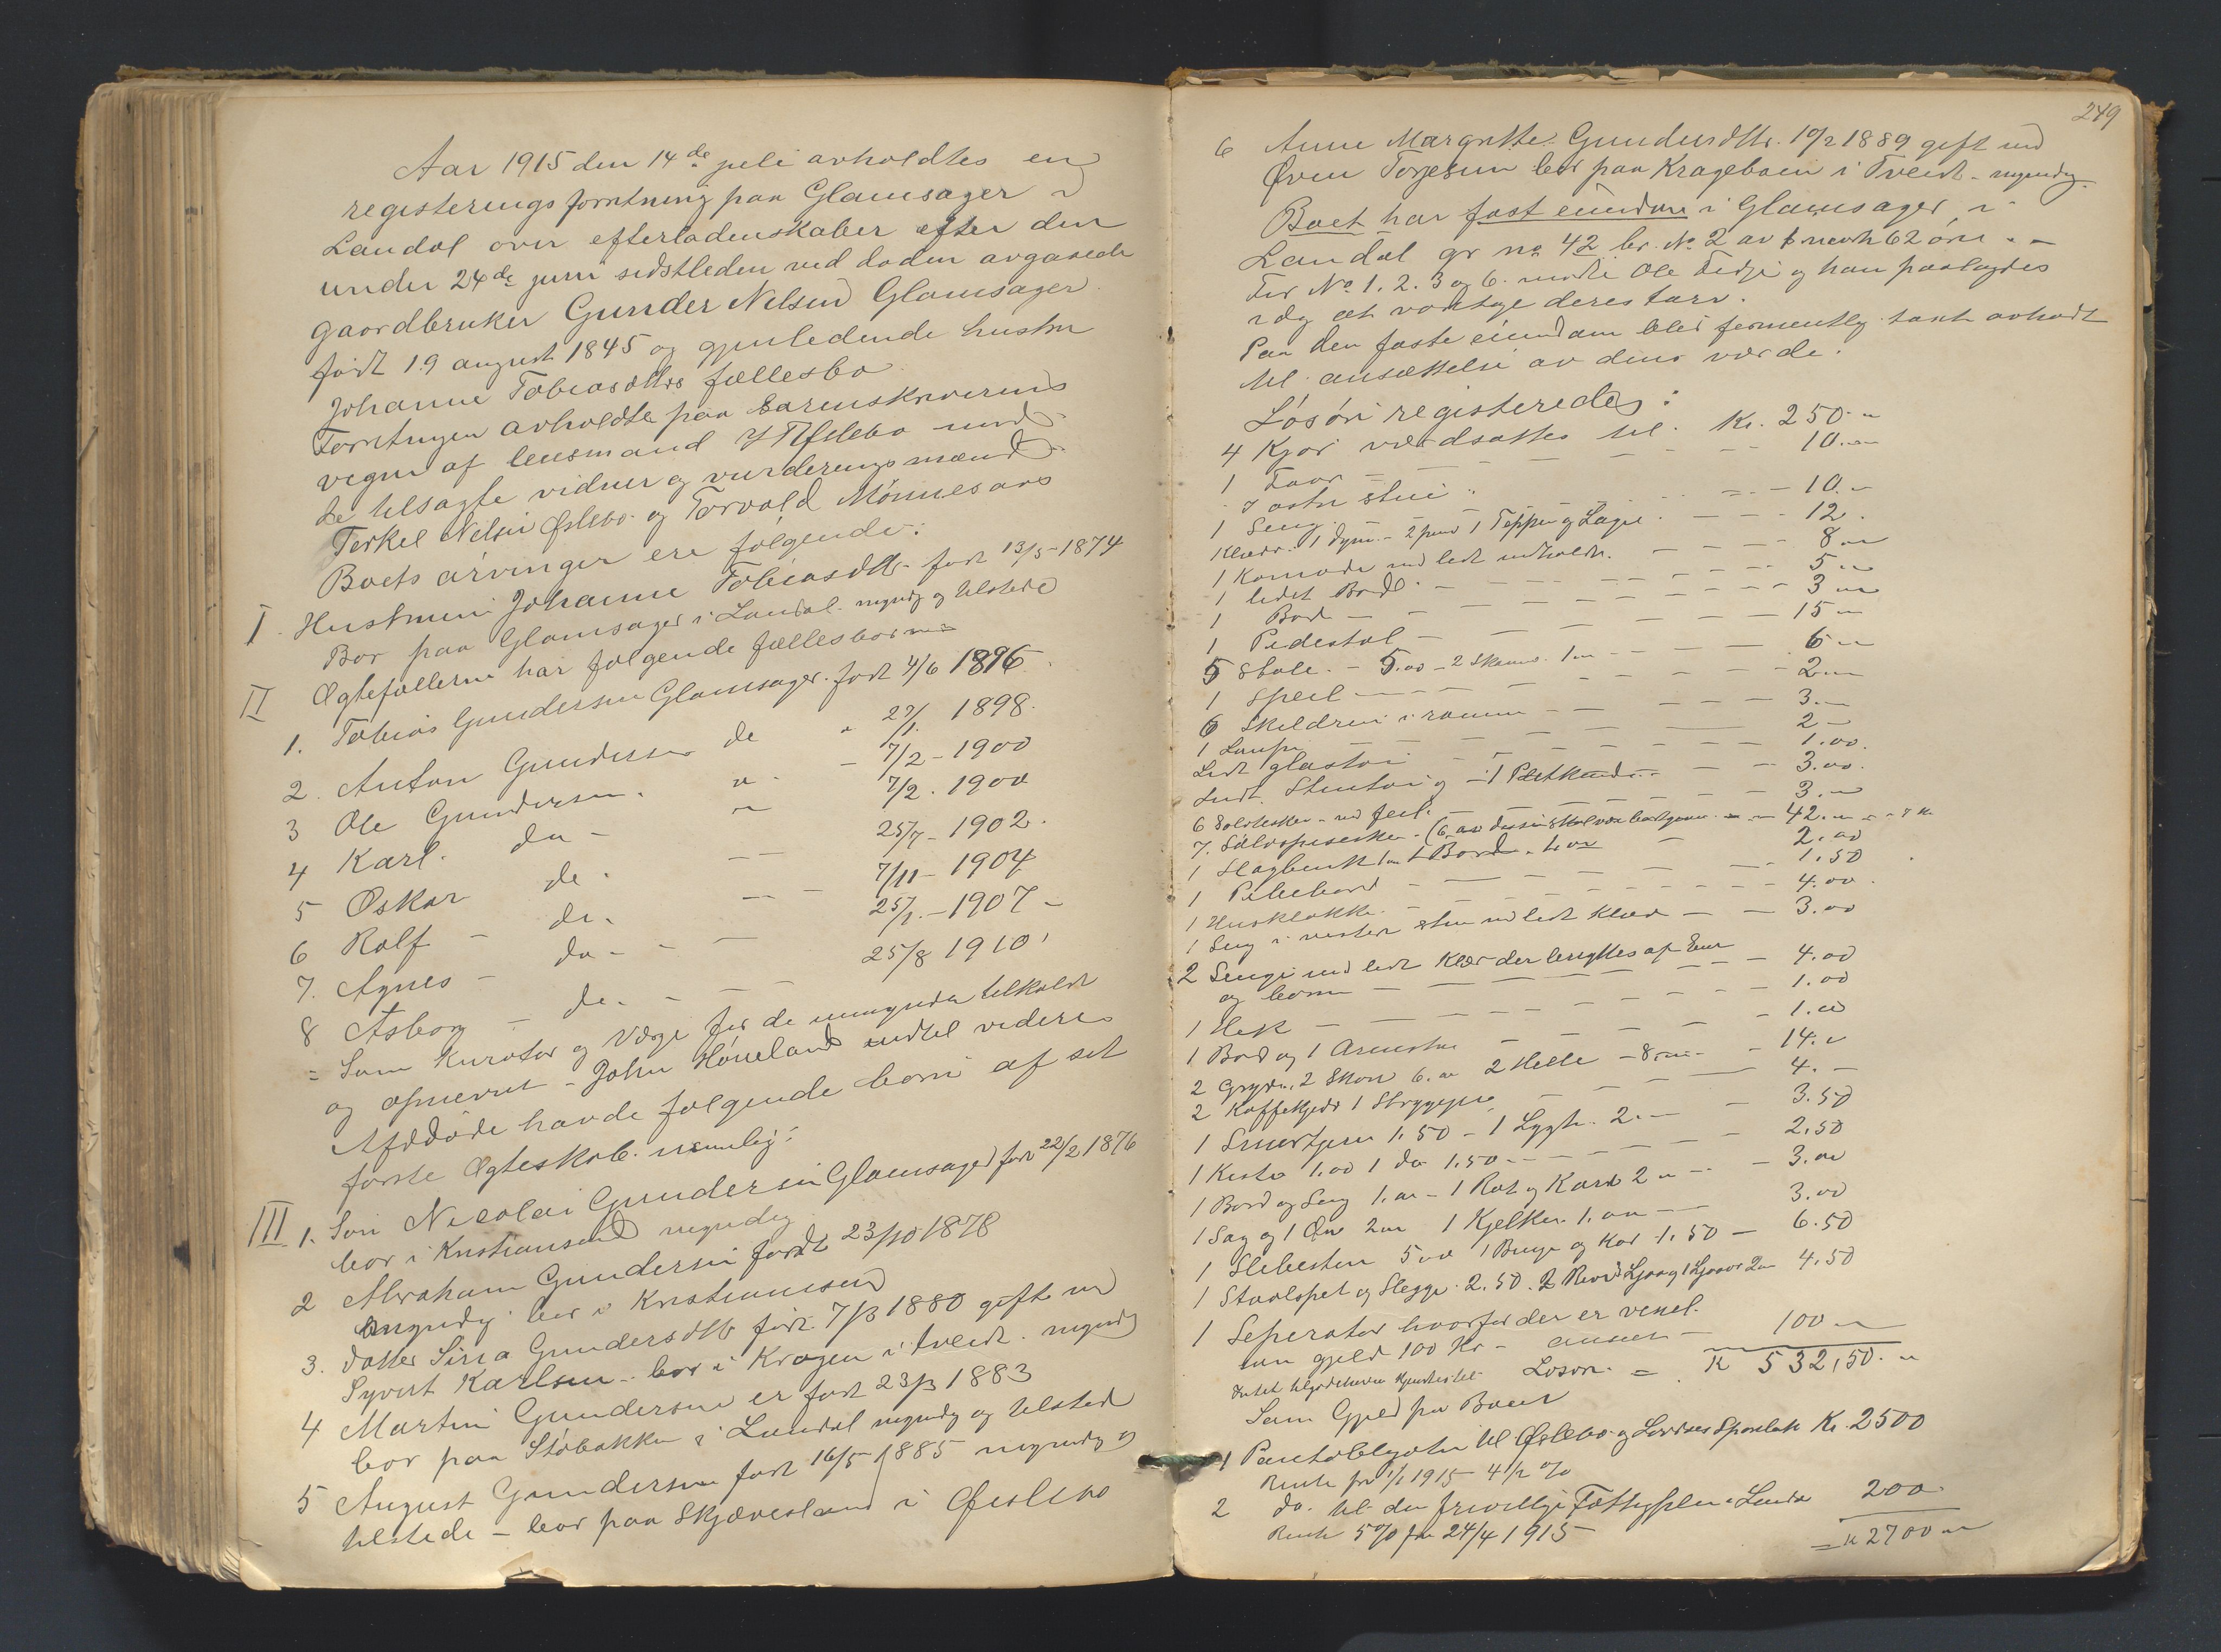 Aar 1915 den 14de juli avholdtes en
registerings forretning paa Glamsager i
Laudal over efterladenskaber efter den
under 24de juni sidstleden ved døden avgaaede
gaardbruker Gunder Nilsen Glamsager
født 19 august 1845 og gjenlevende hustru
Johanne Tobiasdtrs fællesbo
Forretningen avholdte paa Sorenskriverens
vegne af lensmand Øislebø med
de tilsagte vidner og vurderingsmænd
Terkel Nilsen Øslebø og Torvald Mönnesaas
Boets arvinger ere følgende:
I. Hustruen Johanne Tobiasdtr. født 13/5-1874
Bor paa Glamsager i Laudal myndig og tilstede
II Ægtefællerne har følgende fællesbørn
1. Tobias Gundersen Glamsager født 4/6 1896.
2. Anton Gundersen do " 27/1. 1898.
3 Ole Gundersen. " - 7/2-1900
4 Karl. do - " 7/2. 1900
5 Oskar do. — 25/7-1902.
6 Rolf - do. — - 7/11-1904
7. Agnes - do- - — 25/1.-1907-
8 Asborg - do. - — 25/8 1910.
= Som Kurator og Værge for de umyndige tilkaldt
og opnevnt - John Høneland indtil videre
Afdøde havde følgende børn af sit
første Ægteskab. nemlig:
III 1. Søn Nicolai Gundersen Glamsager født 22/2 1876
bor i Kristiansand myndig
2 Abraham Gundersen født 23/10 1878
myndig bor i Kristiansand
3. datter Sina Gundersdtr født 7/3 1880 gift med
Syvert Karlsen - bor i Kragen i tveit. myndig
4 Martin Gundersen er født 23/3 1883
bor paa Støbakken i Laudal myndig og tilstede
5 August Gundersen født 16/5 1885 myndig og
tilstede - bor paa Skjævesland i Øislebø
249
6 Anne Margrethe Gundersdtr. 19/2 1889 gift med
Øven Torjesen bor paa Krageboen i Tveit - myndig.
Boet har fast eiendom i Glamsager i
Laudal gr no 42 br. No 2 av mark 62 øre. -
For No 1. 2. 3 og 6. møtte Ole Tedje og han paalagdes
idag at varetage deres tarv.
Paa den faste eiendom blev forment takst avholdt
til ansættelse av dens værde.
Løsøre registeredes:
4 Kjør værdsattes til. Kr. 250 "
1 Faar - - - 10. "
I østre stue:
1 Seng - - 10. "
Klæder: 1 dyne - 2 1 Teppe og Lagen. - - 12.
1 Komode med lidt indhold. - - 8 "
1 lidet Bord. - - 5 "
1 Bord - - - 3 "
1 Pedestal - - - 15 "
5 Stole. - 5.00 - 2 1 " - - 6 "
1 Speil - - - 2. "
6 Skilderi i ramme - - 3. "
1 Lampe - - - 2 -
Lidt glastøi - - - 1.00.
Lidt Stentøi og - 1 - - 3.00.
6 Sølvskeer - - 3. "
7. Sølvspiseskeer. (6 - 42. "
1 Slagbenk 1 Bord. - 2.00
1 - - 1.50
1 Husklokke. - - - 4.00
1 Seng i vestre stue med lidt klæder - - 3.00
2 Senge med lidt Klær der benyttes af Enken
og børn - - - 4.00
1 Hek - - - 1.00
1 Bord og 1 - - 1.00
2 Gryder, 2 6. " 2 Helle - 8 " - 14. "
2 Kaffekjedel 1 Strygejern - - 4. -
1 Smørtjern 1.50 - 1 Lygte. 2. - - 3.50
1 Kiste 1.00 1 do 1.50 - - - 2.50
1 Bord og Seng 1. " - 1 Rok og Karde 2 " - - 3. "
1 Sag og 1 Øx 2 " 1 Kjelke. 1. " - 3.00
1 Slibesten 5 " 1 Binge og Kar 1.50 - 6.50
1 Staalspet og Slegge 2.50. 2 4.50
1 Seperator hvorfor der er vexel.
som gjeld 100 Kr - 100 "
Intet tilgodehavende Løsøre = . K 532,50. "
Som Gjeld paa Boet
1 Pantobligation til Øslebø og Laudals Sparebank Kr. 2500
Rente fra 1/1 1915 4 1/2 %
2 do. til den frivillige Fattigpleie Laudal 200.
Rente 5% fra 24/4 1915
= K 2700 "